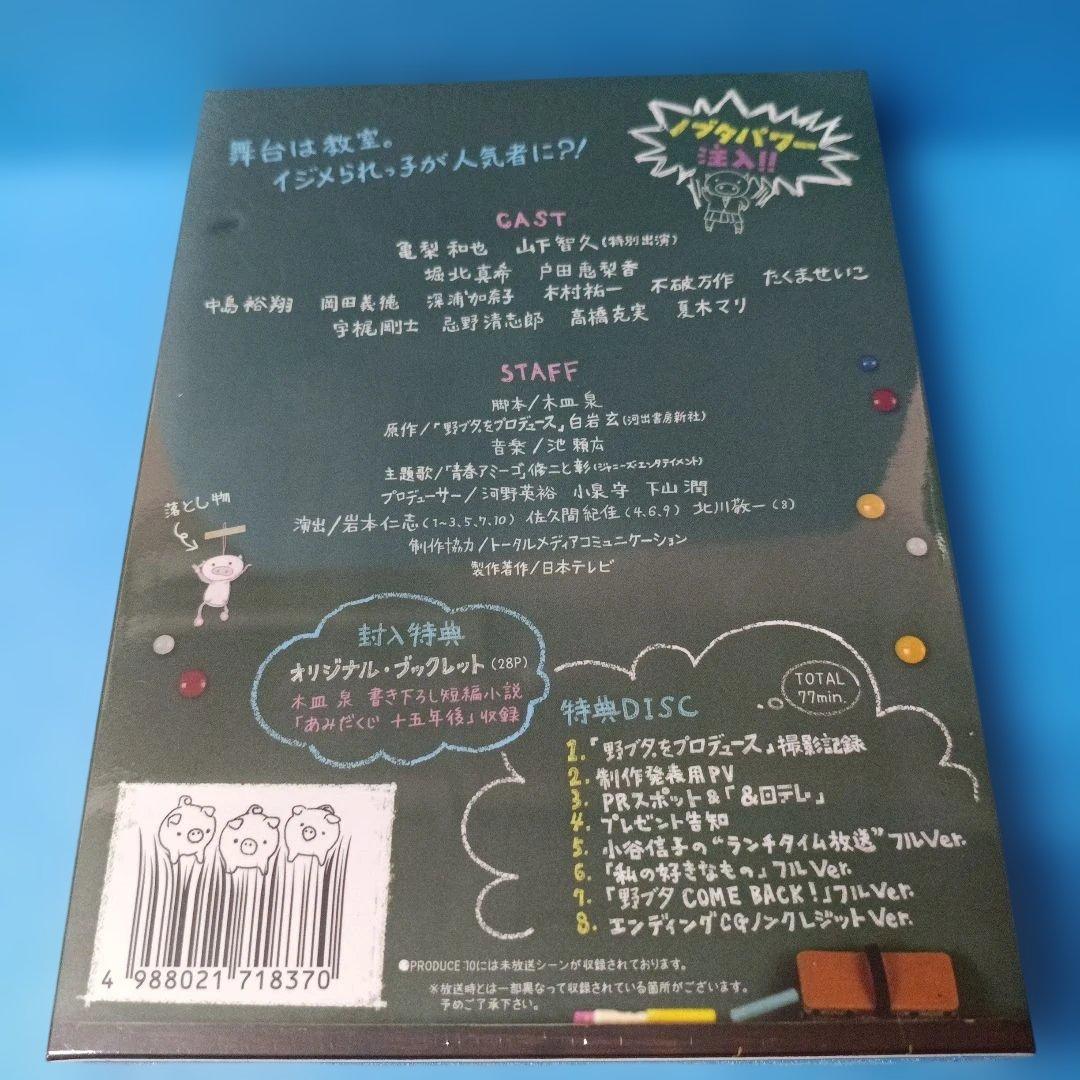 舞台は教室。
イジメられっ子が人気者に?!
ノブタパワー
注入!!
CAST
亀梨和也 山下智久(特別出演)
堀北真希 戸田恵梨香
中島裕翔 岡田義徳 深浦加奈子 木村祐一 不破万作 たくませいこ
宇梶剛士 忌野清志郎 高橋克実 夏木マリ
STAFF
脚本/木皿 泉
原作/「野ブタ。をプロデュース」白岩 玄(河出書房新社)
音楽/池 頼広
主題歌/「青春アミーゴ」修二と彰(ジャニーズ・エンタテイメント)
プロデューサー/河野英裕 小泉 守 下山 潤
演出/岩本仁志(1~3、5、7、10) 佐久間紀佳(4、6、9) 北川敬一(8)
制作協力/トータルメディアコミュニケーション
製作著作/日本テレビ
落とし物
封入特典
オリジナル・ブックレット(28P)
木皿 泉 書き下ろし短編小説
「あみだくじ 十五年後」収録
特典DISC
TOTAL
77min.
1.「野ブタ。をプロデュース」撮影記録
2. 制作発表用PV
3. PRスポット&「&日テレ」
4. プレゼント告知
5. 小谷信子の“ランチタイム放送”フルVer.
6.「私の好きなもの」フルVer.
7.「野ブタ COME BACK!」フルVer.
8. エンディングCGノンクレジットVer.
4 988021 718370
●PRODUCE 10には未放送シーンが収録されております。
※放送時とは一部異なって収録されている箇所がございます。
予めご了承下さい。